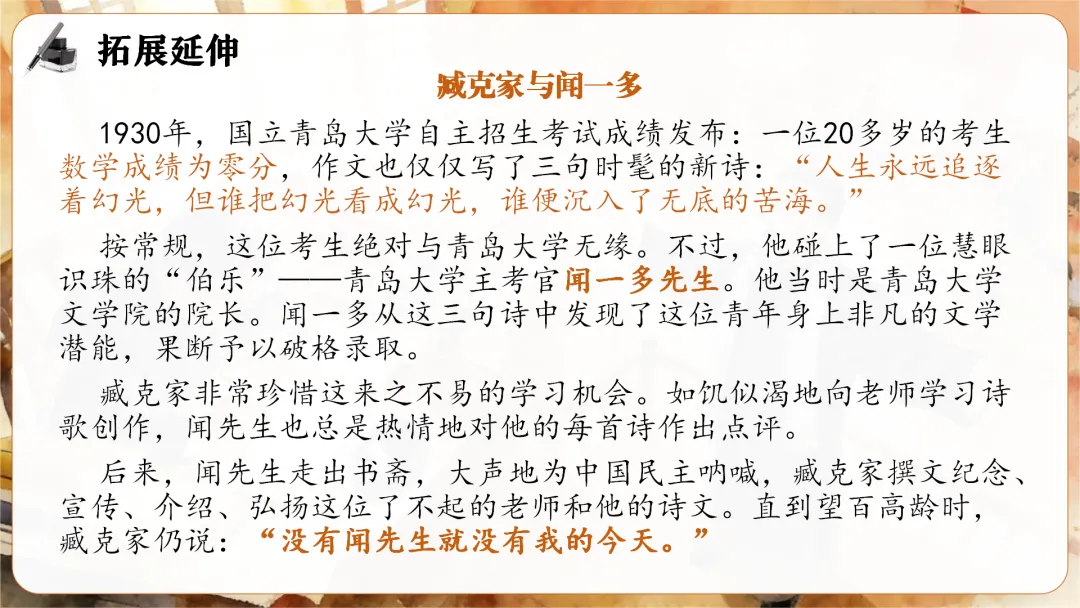 拓展延伸
臧克家与闻一多
1930年，国立青岛大学自主招生考试成绩发布：一位20多岁的考生
数学成绩为零分，作文也仅仅写了三句时髦的新诗：“人生永远追逐
着幻光，但谁把幻光看成幻光，谁便沉入了无底的苦海。”
按常规，这位考生绝对与青岛大学无缘。不过，他碰上了一位慧眼
识珠的“伯乐”——青岛大学主考官闻一多先生。他当时是青岛大学
文学院的院长。闻一多从这三句诗中发现了这位青年身上非凡的文学
潜能，果断予以破格录取。
臧克家非常珍惜这来之不易的学习机会。如饥似渴地向老师学习诗
歌创作，闻先生也总是热情地对他的每首诗作出点评。
后来，闻先生走出书斋，大声地为中国民主呐喊，臧克家撰文纪念、
宣传、介绍、弘扬这位了不起的老师和他的诗文。直到望百高龄时，
臧克家仍说：“没有闻先生就没有我的今天。”